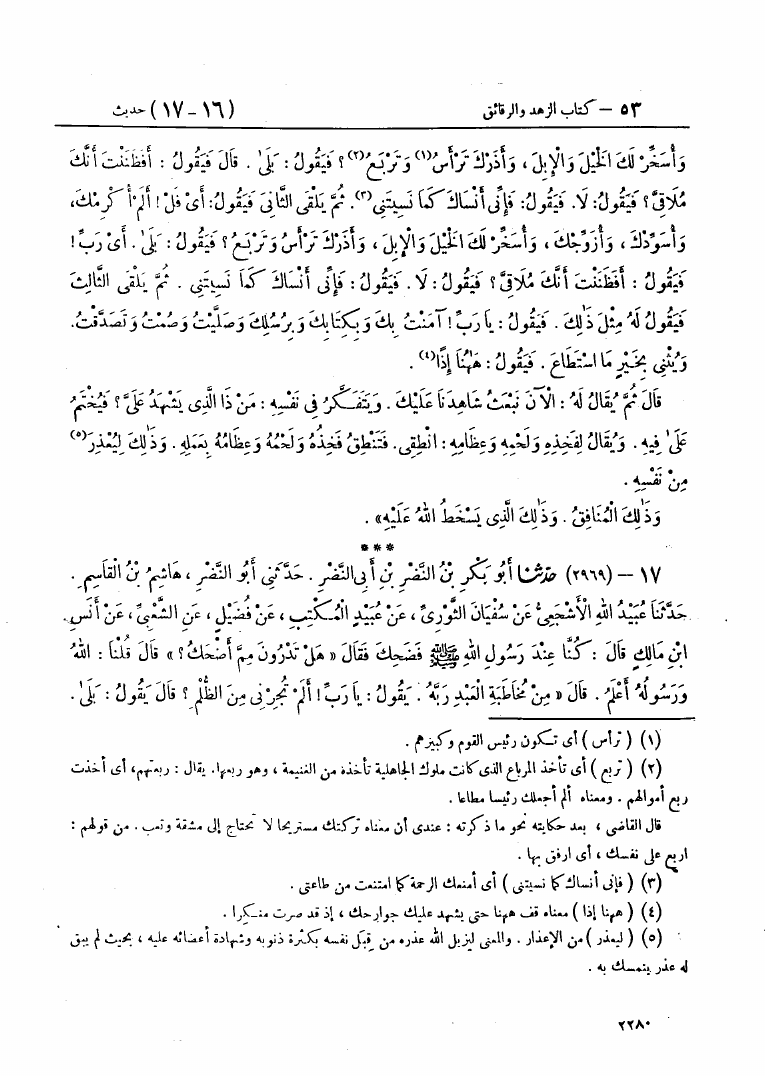 ٥٣ – كتاب الزهد والرقائق (١٦ – ١٧) حديث
وَأُسَخِّرْ لَكَ الْخَيْلَ وَالْإِبِلَ، وَأَذَرْكَ تَرْأَسُ(١) وَتَرْبَعُ(٢)؟ فَيَقُولُ: بَلَىٰ. قَالَ فَيَقُولُ: أَفَظَنَنْتَ أَنَّكَ
مُلَاقِيَّ؟ فَيَقُولُ: لَا. فَيَقُولُ: فَإِنِّي أَنْسَاكَ كَمَا نَسِيتَنِي(٣). ثُمَّ يَلْقَى الثَّانِيَ فَيَقُولُ: أَيْ فُلْ! أَلَمْ أُكْرِمْكَ،
وَأُسَوِّدْكَ، وَأُزَوِّجْكَ، وَأُسَخِّرْ لَكَ الْخَيْلَ وَالْإِبِلَ، وَأَذَرْكَ تَرْأَسُ وَتَرْبَعُ؟ فَيَقُولُ: بَلَىٰ. أَيْ رَبِّ!
فَيَقُولُ: أَفَظَنَنْتَ أَنَّكَ مُلَاقِيَّ؟ فَيَقُولُ: لَا. فَيَقُولُ: فَإِنِّي أَنْسَاكَ كَمَا نَسِيتَنِي. ثُمَّ يَلْقَى الثَّالِثَ
فَيَقُولُ لَهُ مِثْلَ ذَٰلِكَ. فَيَقُولُ: يَا رَبِّ! آمَنْتُ بِكَ وَبِكِتَابِكَ وَبِرُسُلِكَ وَصَلَّيْتُ وَصُمْتُ وَتَصَدَّقْتُ.
وَيُثْنِي بِخَيْرٍ مَا اسْتَطَاعَ. فَيَقُولُ: هَهُنَا إِذًا(٤).
قَالَ ثُمَّ يُقَالُ لَهُ: الْآنَ نَبْعَثُ شَاهِدَنَا عَلَيْكَ. وَيَتَفَكَّرُ فِي نَفْسِهِ: مَنْ ذَا الَّذِي يَشْهَدُ عَلَيَّ؟ فَيُخْتَمُ
عَلَىٰ فِيهِ. وَيُقَالُ لِفَخِذِهِ وَلَحْمِهِ وَعِظَامِهِ: انْطِقِي. فَتَنْطِقُ فَخِذُهُ وَلَحْمُهُ وَعِظَامُهُ بِعَمَلِهِ. وَذَٰلِكَ لِيُعْذِرَ(٥)
مِنْ نَفْسِهِ.
وَذَٰلِكَ الْمُنَافِقُ. وَذَٰلِكَ الَّذِي يَسْخَطُ اللهُ عَلَيْهِ».
***
١٧ – (٢٩٦٩) حَدَّثَنَا أَبُو بَكْرِ بْنُ النَّضْرِ بْنِ أَبِي النَّضْرِ. حَدَّثَنِي أَبُو النَّضْرِ، هَاشِمُ بْنُ الْقَاسِمِ.
حَدَّثَنَا عُبَيْدُ اللهِ الْأَشْجَعِيُّ عَنْ سُفْيَانَ الثَّوْرِيِّ، عَنْ عُبَيْدٍ الْمُكْتِبِ، عَنْ فُضَيْلٍ، عَنِ الشَّعْبِيِّ، عَنْ أَنَسِ
ابْنِ مَالِكٍ قَالَ: كُنَّا عِنْدَ رَسُولِ اللهِ ﷺ فَضَحِكَ فَقَالَ «هَلْ تَدْرُونَ مِمَّ أَضْحَكُ؟» قَالَ قُلْنَا: اللهُ
وَرَسُولُهُ أَعْلَمُ. قَالَ «مِنْ مُخَاطَبَةِ الْعَبْدِ رَبَّهُ. يَقُولُ: يَا رَبِّ! أَلَمْ تُجِرْنِي مِنَ الظُّلْمِ؟ قَالَ يَقُولُ: بَلَىٰ.
(١) (ترأس) أى تكون رئيس القوم وكبيرهم.
(٢) (تربع) أى تأخذ المرباع الذى كانت ملوك الجاهلية تأخذه من الغنيمة، وهو ربعها. يقال: ربعتهم، أى أخذت
ربع أموالهم. ومعناه ألم أجعلك رئيسا مطاعا.
قال القاضى، بعد حكايته نحو ما ذكرته: عندى أن معناه تركتك مستريحا لا تحتاج إلى مشقة وتعب. من قولهم:
اربع على نفسك، أى ارفق بها.
(٣) (فإنى أنساك كما نسيتنى) أى أمنعك الرحمة كما امتنعت من طاعتى.
(٤) (ههنا إذا) معناه قف ههنا حتى يشهد عليك جوارحك، إذ قد صرت منكرا.
(٥) (ليعذر) من الإعذار. والمعنى ليزيل الله عذره من قِبَل نفسه بكثرة ذنوبه وشهادة أعضائه عليه، بحيث لم يبق
له عذر يتمسك به.
٢٢٨٠